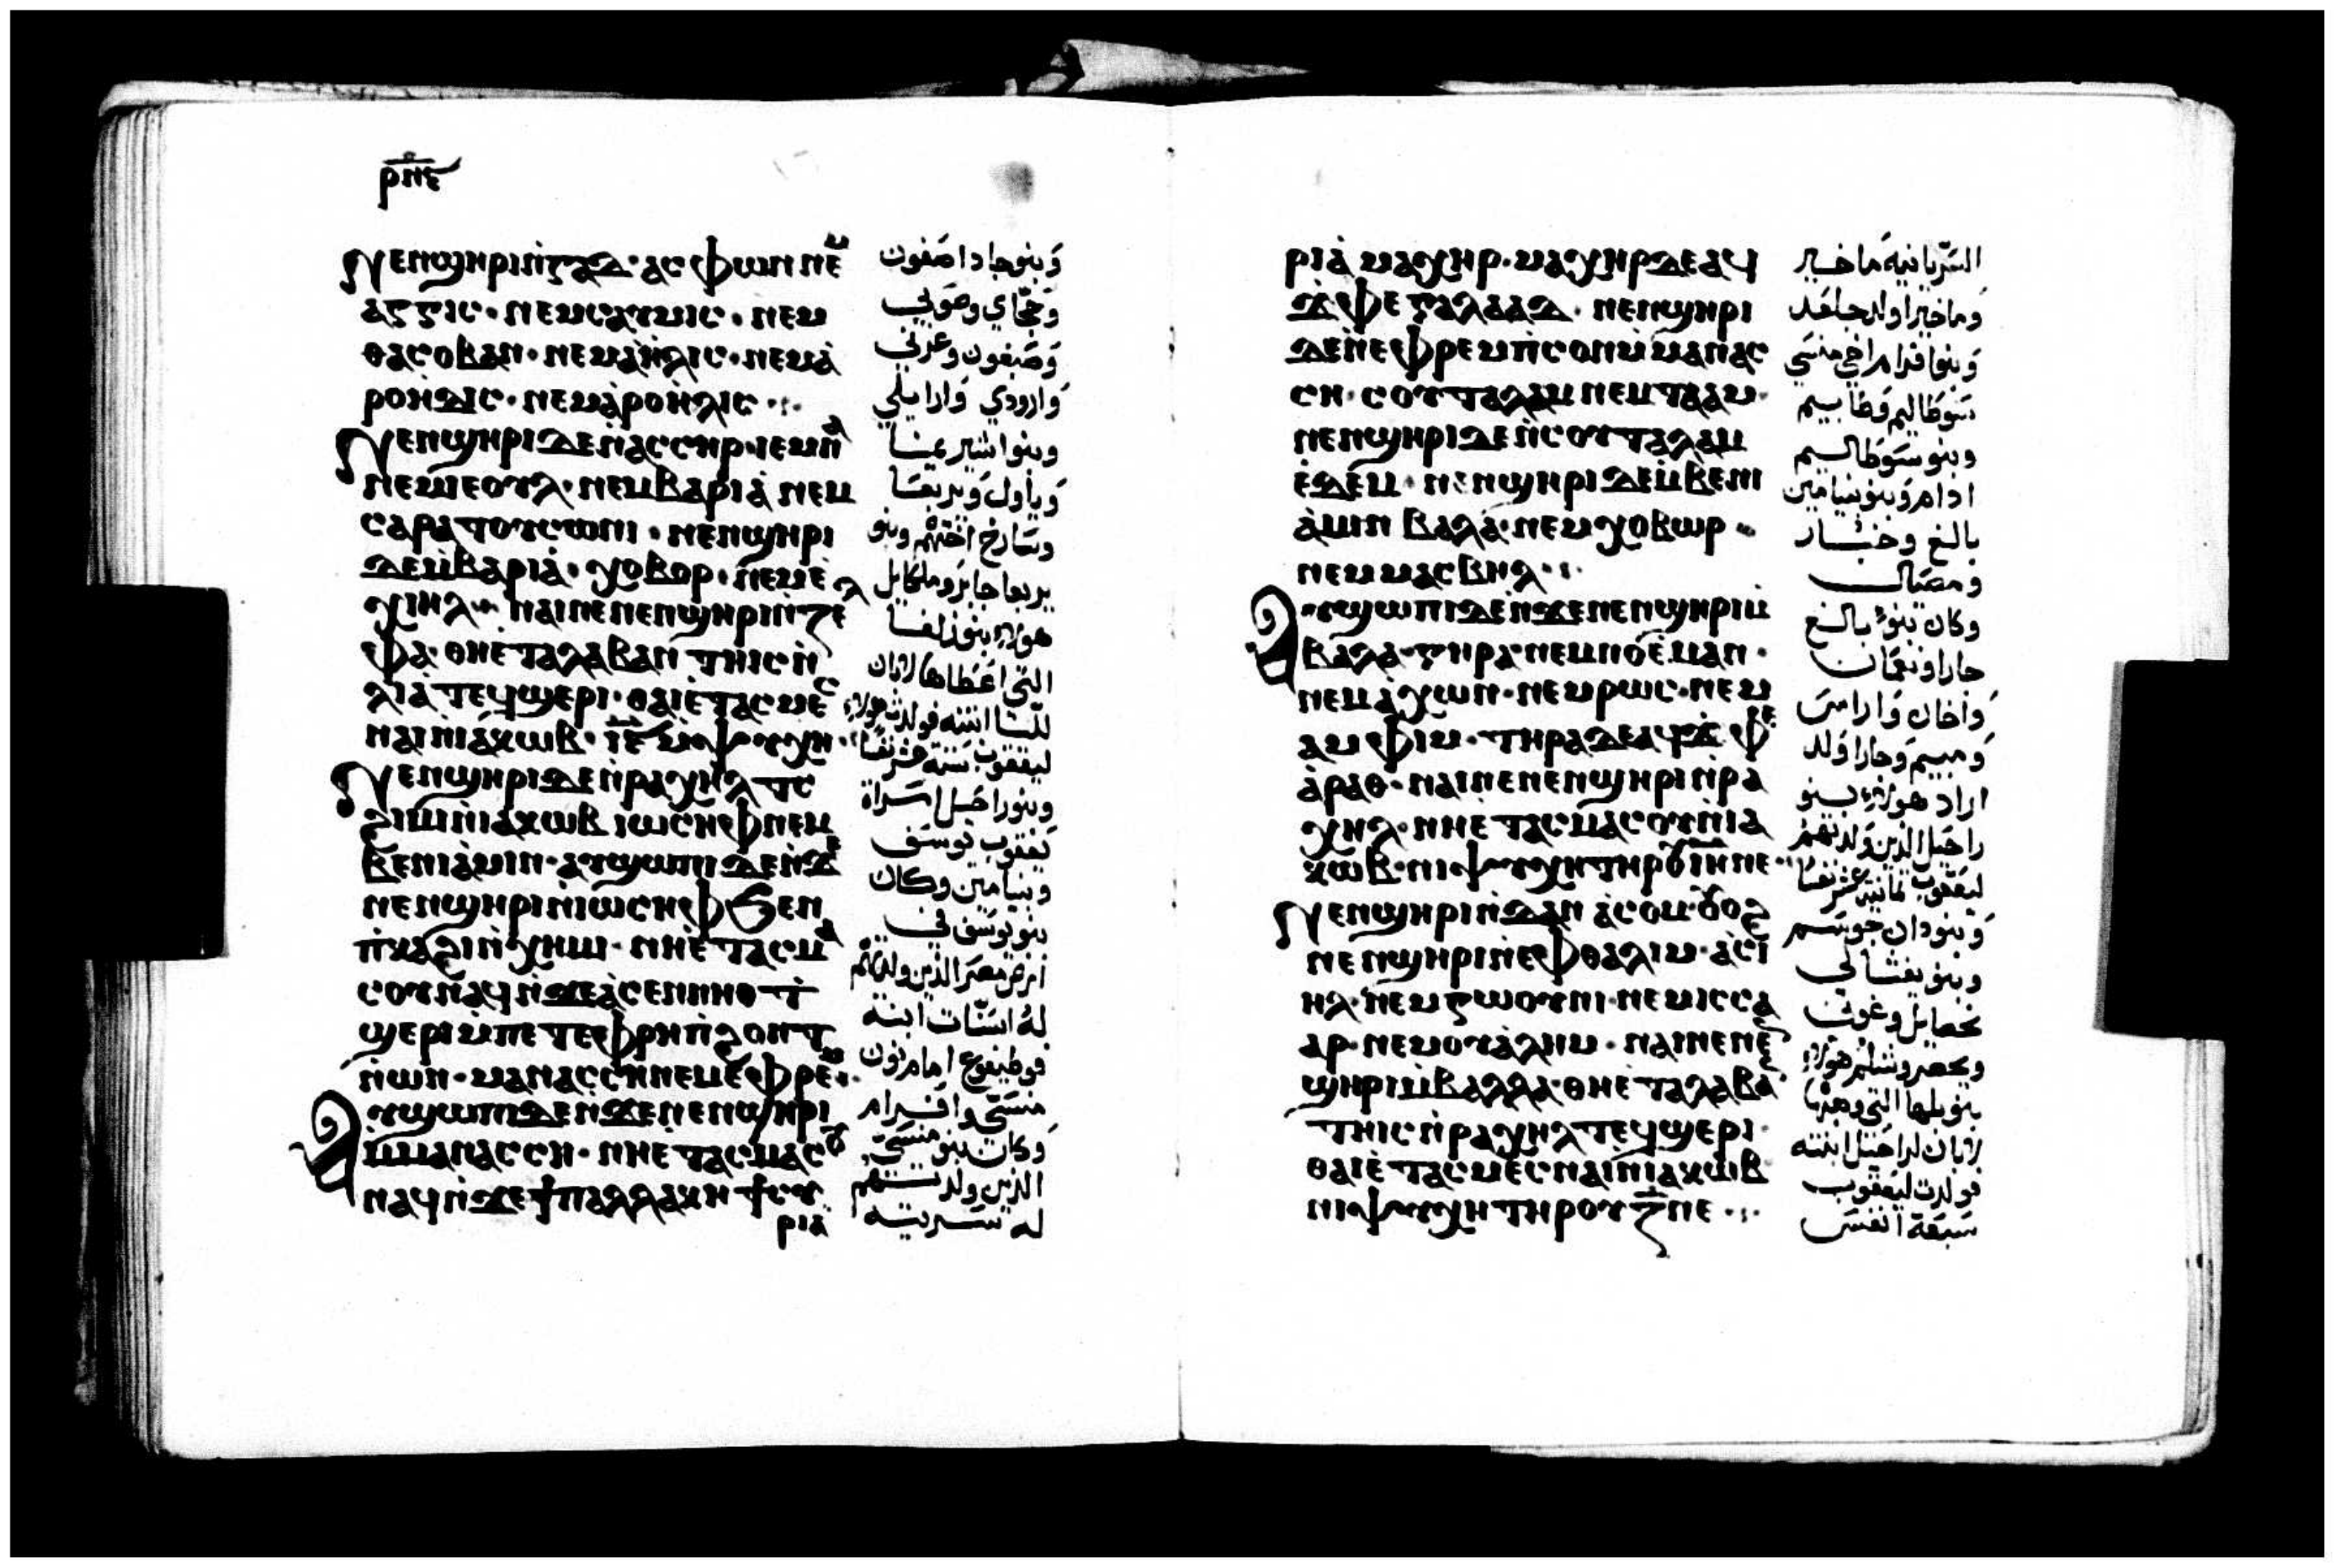 ⲣⲡⲉ
ⲛⲉⲛϣⲏⲣⲓ ⲛ̀ⲅⲁⲇ· ⲁⲥⲫⲱⲛ ⲛⲉⲙ
ⲁⲅⲅⲓⲥ· ⲛⲉⲙ ⲥⲁⲩⲙⲓⲥ· ⲛⲉⲙ
ⲑⲁⲥⲟⲃⲁⲛ· ⲛⲉⲙ ⲁ̀ⲏ̀ⲗⲓⲥ· ⲛⲉⲙ ⲁ̀
ⲣⲟⲏ̀ⲇⲓⲥ· ⲛⲉⲙ ⲁ̀ⲣⲟⲏ̀ⲗⲓⲥ·
ⲛⲉⲛϣⲏⲣⲓ ⲇⲉ ⲛ̀ⲁⲥⲥⲏⲣ· ⲓⲉⲙⲛⲁ
ⲛⲉⲙ ⲓⲉⲟⲩⲗ· ⲛⲉⲙ ⲃⲁⲣⲓⲁ̀ ⲛⲉⲙ
ⲥⲁⲣⲁ ⲧⲟⲩⲥⲱⲛⲓ· ⲛⲉⲛϣⲏⲣⲓ
ⲇⲉ ⲙ̀ⲃⲁⲣⲓⲁ̀· ⲭⲟⲃⲟⲣ· ⲛⲉⲙ ⲉ̀
ⲭⲓⲏⲗ· ⲛⲁⲓ ⲛⲉ ⲛⲉⲛϣⲏⲣⲓ ⲛ̀ⲍⲉⲗ
ⲫⲁ· ⲑⲏⲉ̀ⲧⲁ ⲗⲁⲃⲁⲛ ⲧⲏⲓⲥ ⲛ̀
ⲗⲓⲁ̀ ⲧⲉϥϣⲉⲣⲓ· ⲑⲁⲓ ⲉ̀ⲧⲁⲥⲙⲉⲥ
ⲛⲁⲓ ⲛ̀ⲓⲁⲕⲱⲃ· ⲓⲋ ⲙ̀ⲯⲩⲭⲏ·
ⲛⲉⲛϣⲏⲣⲓ ⲇⲉ ⲛ̀ⲣⲁⲭⲏⲗ ⲧⲥ
ϩⲓⲙⲓ ⲛ̀ⲓⲁⲕⲱⲃ ⲓⲱⲥⲏⲫ ⲛⲉⲙ
ⲃⲉⲛⲓⲁ̀ⲙⲓⲛ· ⲁⲩϣⲱⲡⲓ ⲇⲉ ⲛ̀ϫⲉ
ⲛⲉⲛϣⲏⲣⲓ ⲛ̀ⲓⲱⲥⲏⲫ ϧⲉⲛ
ⲡ̀ⲕⲁϩⲓ ⲛ̀ⲭⲏⲙⲓ· ⲛⲏⲉ̀ⲧⲁⲥⲙⲁ
ⲥⲟⲩ ⲛⲁϥ ⲛ̀ϫⲉ ⲁ̀ⲥⲉⲛⲛⲏⲑ ⲧ̀
ϣⲉⲣⲓ ⲙ̀ⲡⲉⲧⲉⲫⲣⲏ ⲡ̀ϩⲟⲛⲧ
ⲛ̀ⲱⲛ· ⲙⲁⲛⲁⲥⲥⲏ ⲛⲉⲙ ⲉ̀ⲫⲣⲉⲙ·
ⲁⲩϣⲱⲡⲓ ⲇⲉ ⲛ̀ϫⲉ ⲛⲉⲛϣⲏⲣⲓ
ⲙ̀ⲙⲁⲛⲁⲥⲥⲏ· ⲛⲏⲉ̀ⲧⲁⲥⲙⲁⲥⲟⲩ
ⲛⲁϥ ⲛ̀ϫⲉ ϯⲡⲁⲗⲗⲁⲕⲏ ϯⲥⲩ
ⲣⲓⲁ̀
وبنو جاد اصفون
وحجاي وصوني
وصبعون وعرني
وارودي وارايلي
وبنو اشير يمنا
ويأول وبريعا
وسارخ اختهم وبنو
بريعا جابر وملكايل
هولاء بنو زلفا
التي اعطاها لابان
لليا ابنته فولدت هولاء
ليعقوب ستة عشر نفسا
وبنو راحيل امراة
يعقوب يوسف
وبنيامين وكان
بنو يوسف في
ارض مصر الذين ولدتهم
له اسنات ابنة
فوطيفوع امام نون
منسى وافرام
وكان بنو منسى
الذين ولدتهم
له سريته
ⲣⲓⲁ̀ ⲙⲁⲭⲏⲣ· ⲙⲁⲭⲏⲣ ⲇⲉ ⲁϥ
ϫ̀ⲫⲉ ⲅⲁⲗⲁⲁⲇ· ⲛⲉⲛϣⲏⲣⲓ
ⲇⲉ ⲛ̀ⲉⲫⲣⲉⲙ ⲡ̀ⲥⲟⲛ ⲙ̀ⲙⲁⲛⲁⲥ
ⲥⲏ· ⲥⲟⲩⲧⲁⲗⲁⲙ ⲛⲉⲙ ⲧⲁⲁⲙ·
ⲛⲉⲛϣⲏⲣⲓ ⲇⲉ ⲛ̀ⲥⲟⲩⲧⲁⲗⲁⲙ
ⲉ̀ⲇⲉⲙ· ⲛⲉⲛϣⲏⲣⲓ ⲇⲉ ⲙ̀ⲃⲉⲛⲓ
ⲁ̀ⲙⲓⲛ ⲃⲁⲗⲁ· ⲛⲉⲙ ⲭⲟⲃⲱⲣ·
ⲛⲉⲙ ⲙⲁⲥⲃⲏⲗ·
ⲁⲩϣⲱⲡⲓ ⲇⲉ ⲛ̀ϫⲉ ⲛⲉⲛϣⲏⲣⲓ ⲙ̀
ⲃⲁⲗⲁ· ⲅⲏⲣⲁ ⲛⲉⲙ ⲛⲟⲉ̀ⲙⲁⲛ·
ⲛⲉⲙ ⲁ̀ⲭⲱⲛ· ⲛⲉⲙ ⲣⲱⲥ· ⲛⲉⲙ
ⲁⲙⲫⲓⲙ· ⲅⲏⲣⲁ ⲇⲉ ⲁϥϫ̀ⲫⲉ
ⲁ̀ⲣⲁⲑ· ⲛⲁⲓ ⲛⲉ ⲛⲉⲛϣⲏⲣⲓ ⲛ̀ⲣⲁ
ⲭⲏⲗ· ⲛⲏⲉ̀ⲧⲁⲥⲙⲁⲥⲟⲩ ⲛ̀ⲓⲁ
ⲕⲱⲃ· ⲛⲓⲯⲩⲭⲏ ⲧⲏⲣⲟⲩ ⲓⲏ ⲛⲉ·
ⲛⲉⲛϣⲏⲣⲓ ⲛ̀ⲇⲁⲛ ⲁⲥⲟⲙ· ⲟⲩⲟϩ
ⲛⲉⲛϣⲏⲣⲓ ⲛ̀ⲉⲫⲑⲁⲗⲓⲙ· ⲁ̀ⲥⲓ
ⲏⲗ· ⲛⲉⲙ ⲅⲱⲟⲩⲛⲓ· ⲛⲉⲙ ⲓⲥⲥⲁ
ⲁⲣ· ⲛⲉⲙ ⲟⲩⲁ̀ⲗⲏⲙ· ⲛⲁⲓ ⲛⲉ ⲛⲉⲛ
ϣⲏⲣⲓ ⲙ̀ⲃⲁⲗⲗⲁ· ⲑⲏⲉ̀ⲧⲁ ⲗⲁⲃⲁⲛ
ⲧⲏⲓⲥ ⲛ̀ⲣⲁⲭⲏⲗ ⲧⲉϥϣⲉⲣⲓ·
ⲑⲁⲓ ⲉ̀ⲧⲁⲥⲙⲉⲥ ⲛⲁⲓ ⲛ̀ⲓⲁⲕⲱⲃ
ⲛⲓⲯⲩⲭⲏ ⲧⲏⲣⲟⲩ ⲍ ⲛⲉ·
السريانية ماخير
وماخير اولد جلعد
وبنو افرام اخي منسى
سوطاليم وطاييم
وبنو سوطاليم
ادام وبنو بنيامين
بالغ وخبار
ومصبال
وكان بنو بالغ
جارا ونعمان
واخان وارامس
ومبيم وجارا ولد
اراد هولاء بنو
راحيل الذين ولدتهم
ليعقوب ثمانية عشر نفسا
وبنو دان جوسم
وبنو يفتالي
يحصايل وغوني
ويحصر وشليم هولاء
بنو بلها التي وهبها
لابان لراحيل ابنته
فولدت ليعقوب
سبعة انفس